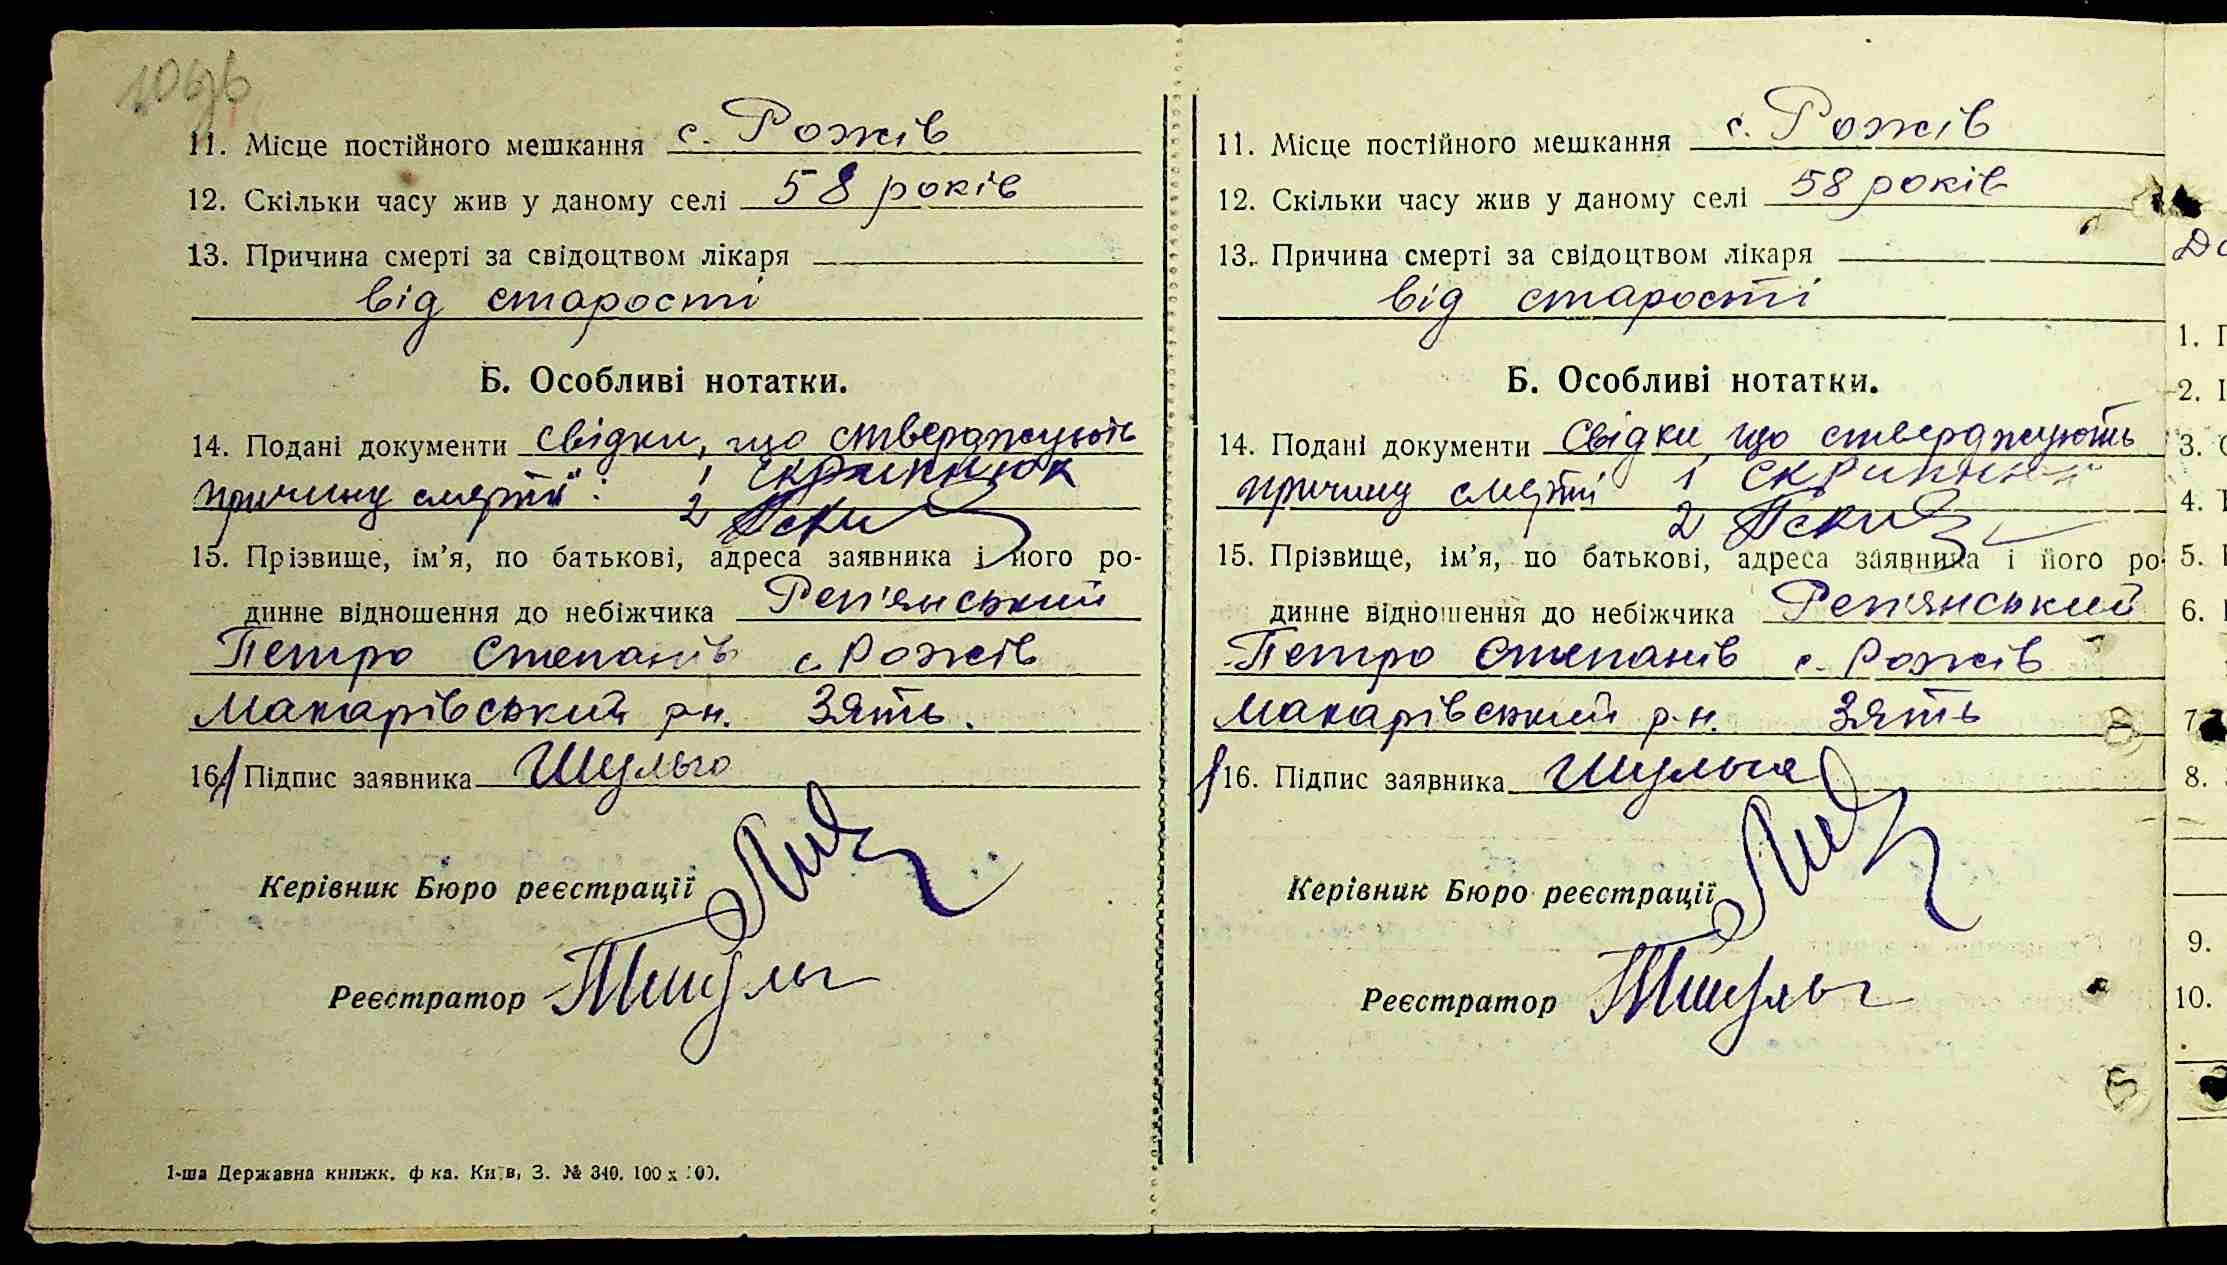 106
11. Місце постійного мешкання с. Рожів
12. Скільки часу жив у даному селі 58 років
13. Причина смерті за свідоцтвом лікаря
від старости
Б. Особливі нотатки.
14. Подані документи свідки, що стверджують
причину смерти: 1 Скрипнюк
2
15. Прізвище, ім’я, по батькові, адреса заявника і його ро-
динне відношення до небіжчика Реп'янський
Петро Степанів с. Рожів
Макарівський р-н. Зять.
16. Підпис заявника Шульга
Керівник Бюро реєстрації
Реєстратор ТШульг
1-ша Державна книжк. ф-ка. Київ, З. № 340. 100 х
11. Місце постійного мешкання с. Рожів
12. Скільки часу жив у даному селі 58 років
13. Причина смерті за свідоцтвом лікаря
від старости
Б. Особливі нотатки.
14. Подані документи свідки, що стверджують
причину смерти 1 Скрипнюк
2
15. Прізвище, ім’я, по батькові, адреса заявника і його ро-
динне відношення до небіжчика Реп'янський
Петро Степанів с. Рожів
Макарівський р-н. Зять
16. Підпис заявника Шульга
Керівник Бюро реєстрації
Реєстратор ТШульг
1.
2.
3.
4.
5.
6.
7.
8.
9.
10.